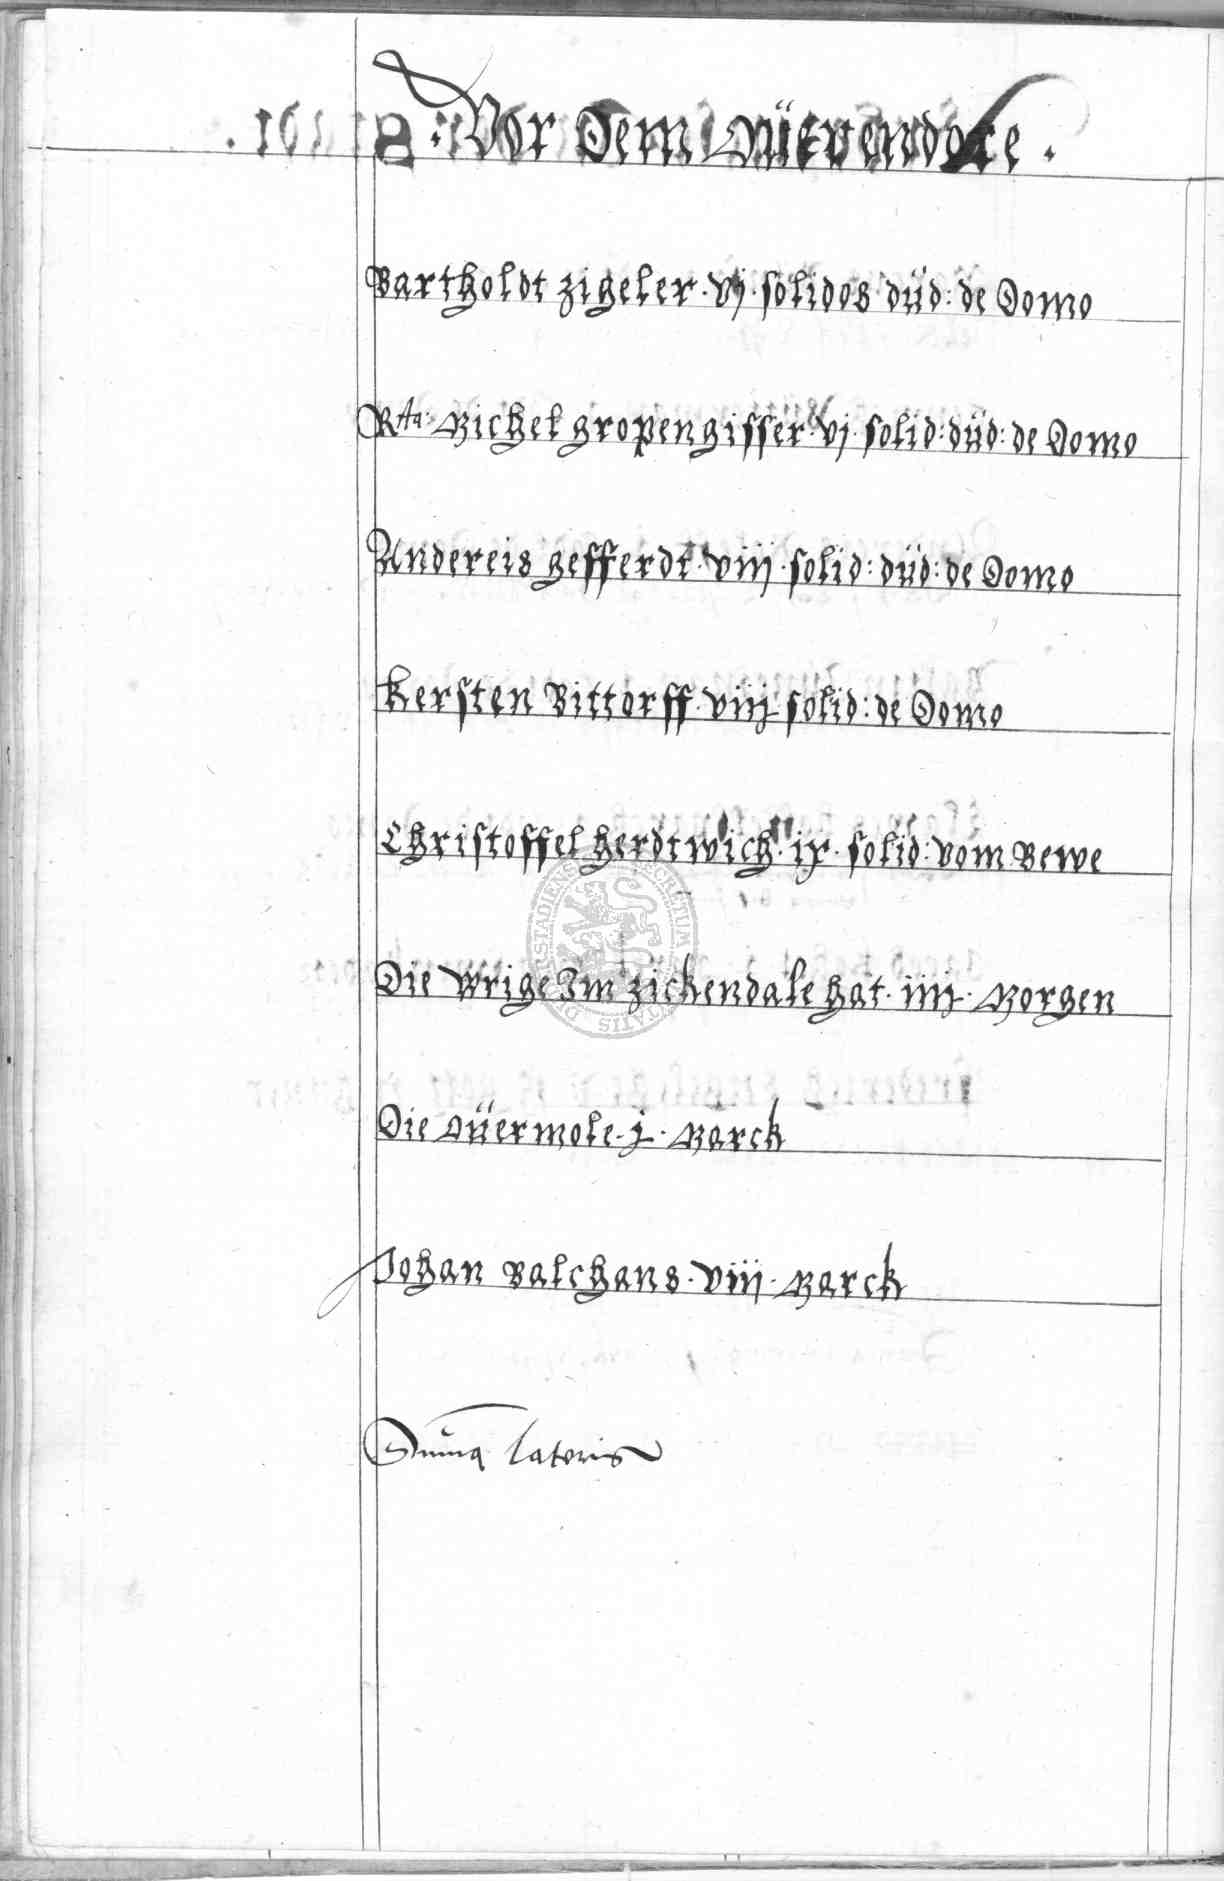 Vor dem Oüerendore.
Bartholdt zigeler. vj. solidos düd: de Domo
Rta. Michel gropengisser. vj. solid: düd: de Domo
Andereis gefferdt. viij. solid: düd: de Domo
Kersten Bittorff. viij. solid: de Domo
Christoffel herdtwich. ix. solid: vom Bewe
Die wrige Im zickendale hat. iiij. Morgen
Die oüermole. j. Marck
Johan Balchans. viij. Marck
Suma lateris